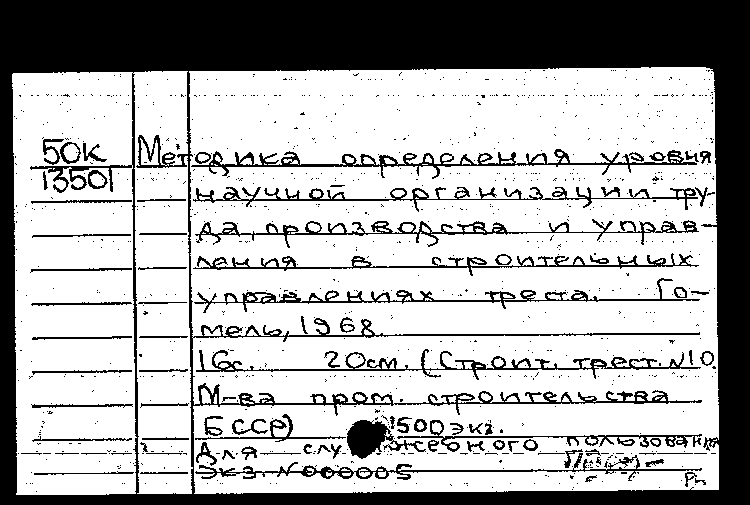 50К Методика определения уровня
13501 научной организации тру-
да, производства и управ-
ления в строительных
управлениях треста. Го-
мель, 1968.
16с. 20см. (Строит. трест №10
М-ва пром. строительства
БССР) 1500 экз.
Для служебного пользования
Экз. №000005